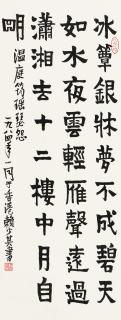 冰簟銀牀夢不成碧天
如水夜雲輕雁聲遠過
瀟湘去十二樓中月自
明
温庭筠瑶瑟怨
一九八四年一月于香港賴少其書